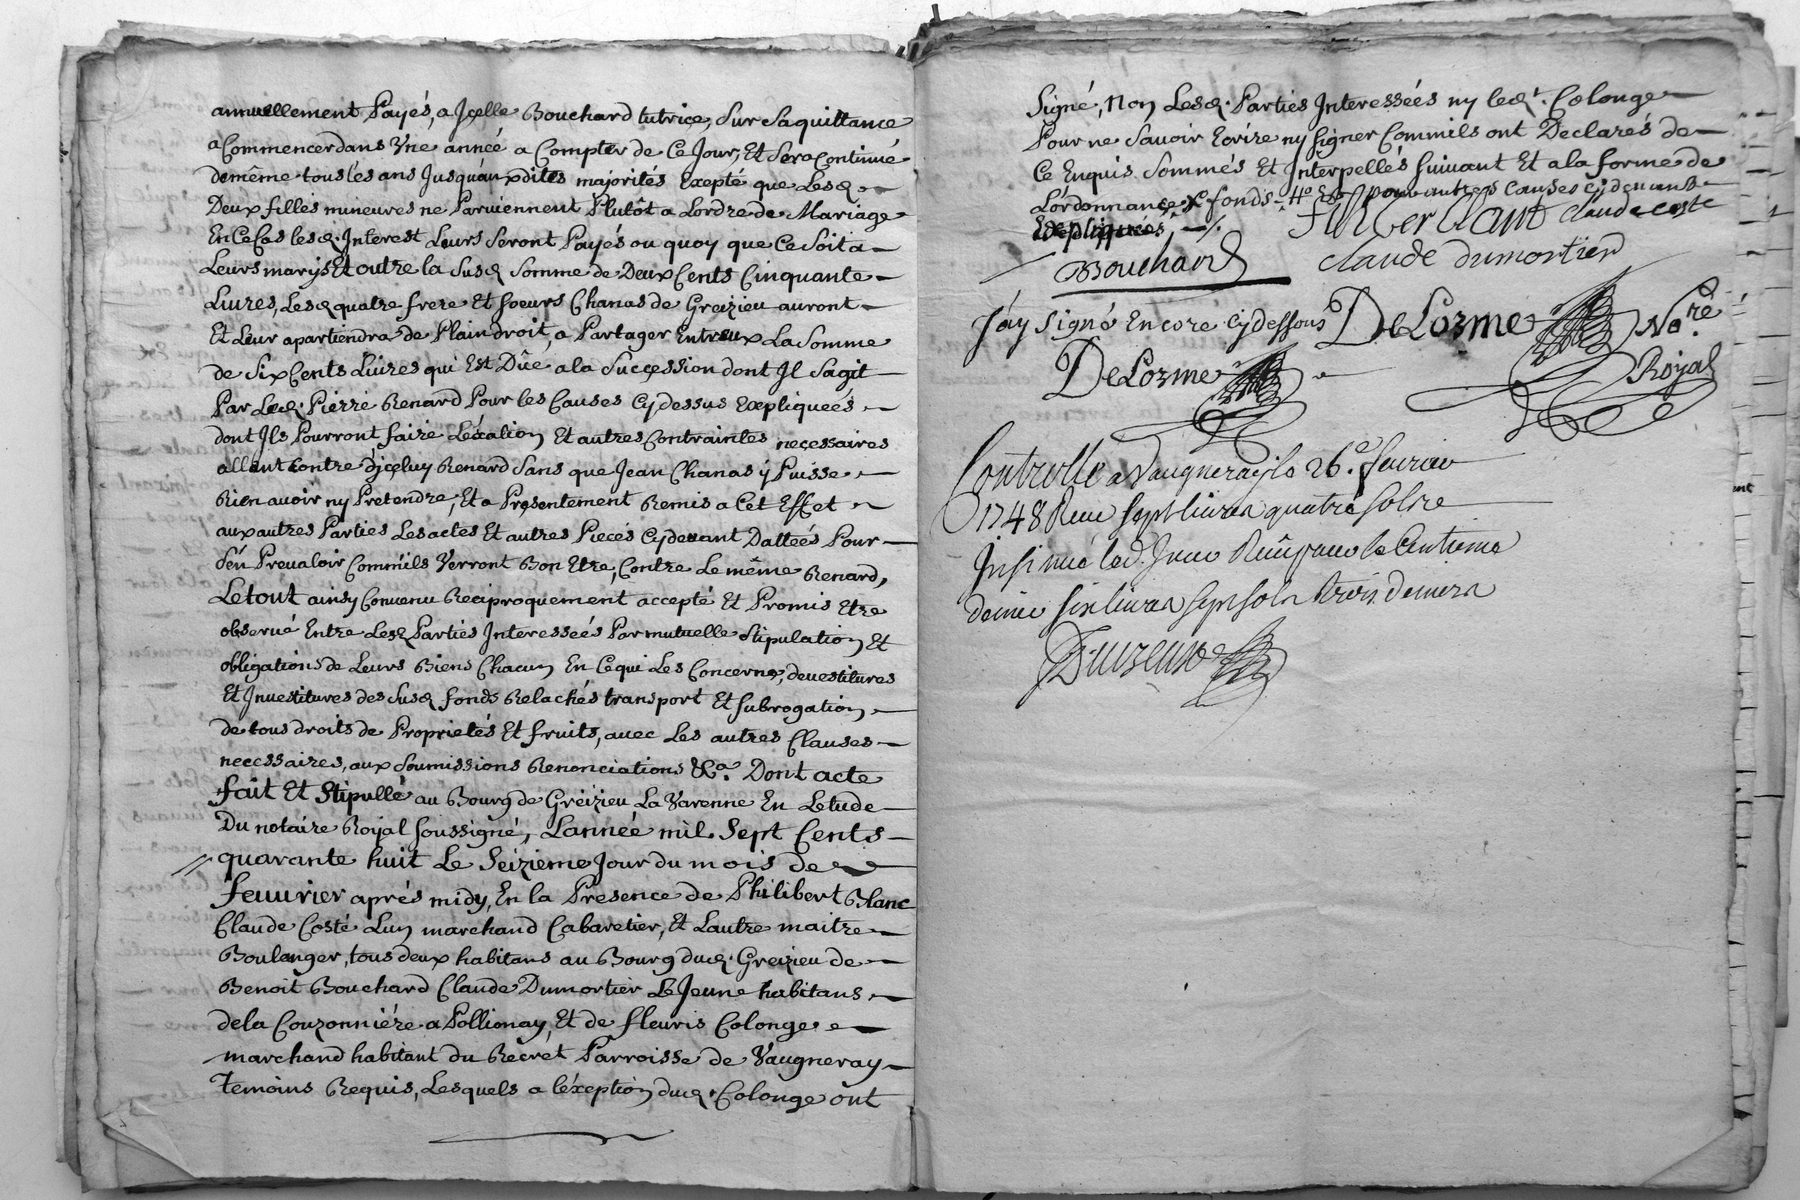 annuellement Payés, a Jçelle Bouchard tutriçe, Sur Saquittance
a Commencer dans Une année a Compter de Ce Jour, Et Sera Continué
demême tous lés ans Jusqu'aux dites majorités Exepté que Lesd.
Deux filles mineures ne Parviennent Plutôt a Lordre de Mariage
En Ce Cas lesd. Interest Leurs Seront Payés ou quoy que Ce Soit a
Leurs marys Et outre la Susd Somme de Deux Cents Cinquante
Livres, Lesd quatre frere Et Soeurs Chanas de Greizieu auront
Et Leur apartiendra de Plain droit, a Partager Entreux La Somme
de Six Cents Livres qui Est Düe a la Sucçession dont Jl Sagit
Par Led. Pierre Renard Pour les Causes Cydessus Expliqueés
dont Jls Pourront faire Léxation Et autres Contraintes neçessaires
allant Contre d'jçeluy Renard Sans que Jean Chanas ÿ Puisse
Rien avoir ny Pretendre, Et a Présentement Remis a Cet Effet
aux autres Parties Les actes Et autres Pieces Cydevant Dattées Pour
S'én Prevaloir Comm'ils Verront Bon Etre, Contre Le même Renard,
Le tout ainsy Convenu Reciproquement accepté Et Promis Etre
observé Entre Lesd Parties Interesseés Par mutuelle Stipulation Et
obligations de Leurs Biens Chacun En Ce qui Les Concerne, devestitures
Et Jnvestitures des Susd fonds Relachés transport Et Subrogation
de tous droits de Proprietés Et fruits, avec Les autres Clauses
necessaires, aux Soumissions Renonciations &a. Dont acte
fait Et Stipullé au Bourg de Gréizieu La Varenne En Letude
Du notaire Roÿal Soussigné, Lanneé mil Sept Cents
quarante huit Le Seizieme Jour du mois de
fevurier aprés midy, En la Presence de Philibert Blanc
Claude Costé Lun marchand Cabaretier, Et Lautre maitre
Boulanger, tous deux habitans au Bourg dud. Greizieu de
Benoit Bouchard Claude Dumortier Le Jeune habitans
de la Couzonniére a Pollionay, Et de fleuris Colonge
marchand habitant du Recret Parroisse de Vaugneray
Temoins Requis, Lesquels a léxeption dud. Colonge ont
Signé, Non Lesd. Parties Interesseés ny led. Colonge
Pour ne Savoir Ecrire ny Signer Comm'ils ont Declarés de
Ce Enquis Sommés Et Interpellés Suivant Et a la forme de
Lórdonnance fonds pour autres Causes cydevant
Expliqueés
Claude coste
Bouchard
claude dumortier
J'ay Signé Encore Cydessous DeLorme No.re
DeLorme Royal
Controllé a Vaugneray le 26.e fevrier
1748 Reçu Sept livres quatre sols
Insinué led. Jour Reçu pour le Centieme
denier six livres sept sols trois deniers